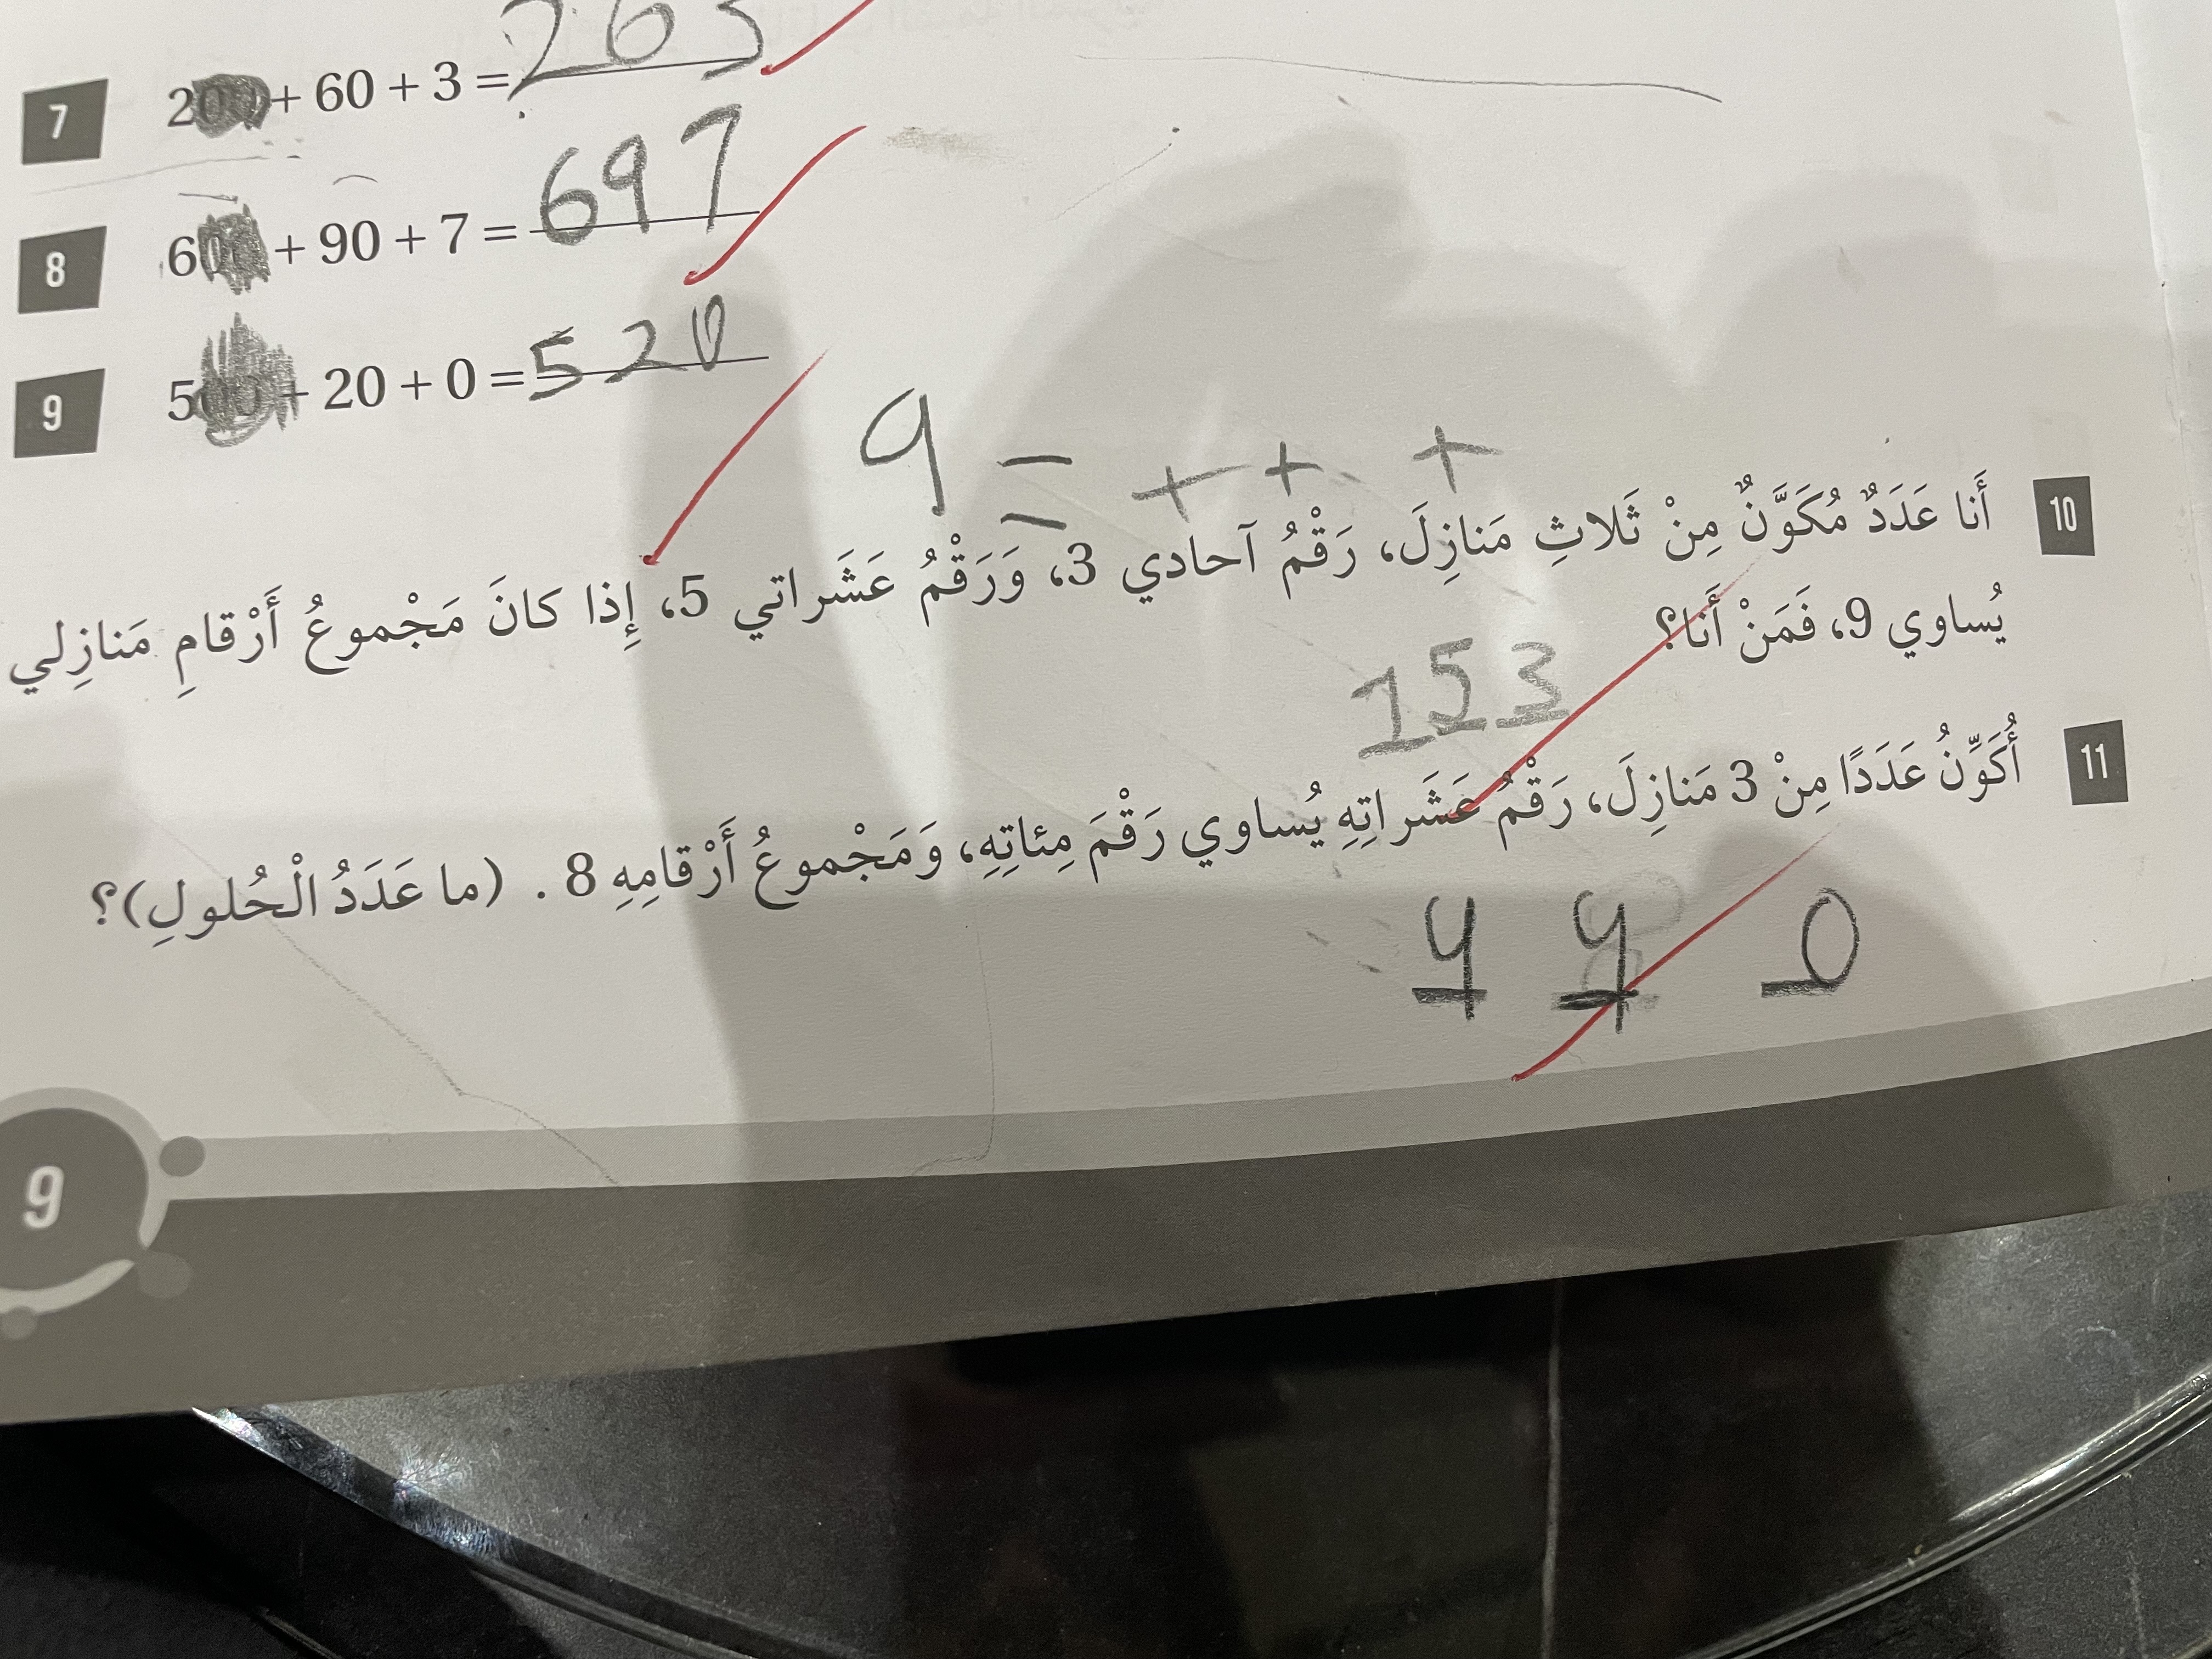 7 200 + 60 + 3 = 263
8 600 + 90 + 7 = 697
9 500 + 20 + 0 = 520
9 = + + +
10 أَنا عَدَدٌ مُكَوَّنٌ مِنْ ثَلاثِ مَنازِلَ، رَقْمُ آحادي 3، وَرَقْمُ عَشَراتي 5، إِذا كانَ مَجْموعُ أَرْقامِ مَنازِلي
يُساوي 9، فَمَنْ أَنا؟
153
11 أُكَوِّنُ عَدَدًا مِنْ 3 مَنازِلَ، رَقْمُ عَشَراتِهِ يُساوي رَقْمَ مِئاتِهِ، وَمَجْموعُ أَرْقامِهِ 8 . (ما عَدَدُ الْحُلولِ)؟
4 4 0
9